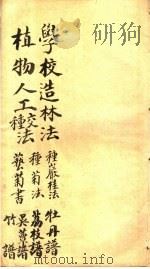 學校造林法
植物人工交種法
種巖桂法
種菊法
藝菊書
牡丹譜
荔枝譜
吳蕈譜
竹譜